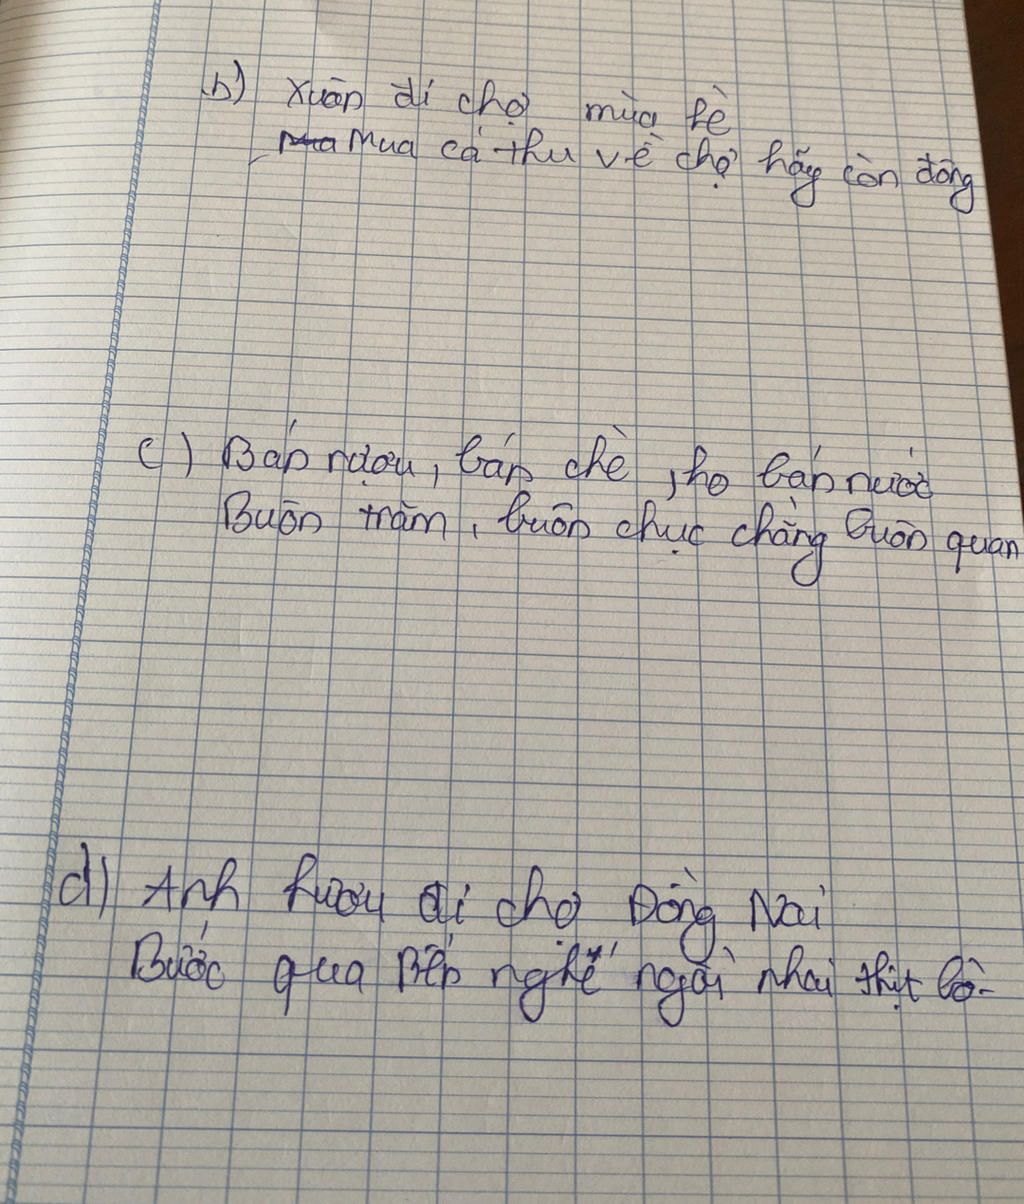 b) Xuân đi chợ mùa hè
Mua cá thu về chợ hãy còn đông
c) Bán rượu, bán chè, ho bán nước
Buôn trăm, buôn chục chẳng buôn quan
d) Anh hươu đi chợ Đồng Nai
Bước qua Bến nghế ngồi nhai thịt bò.